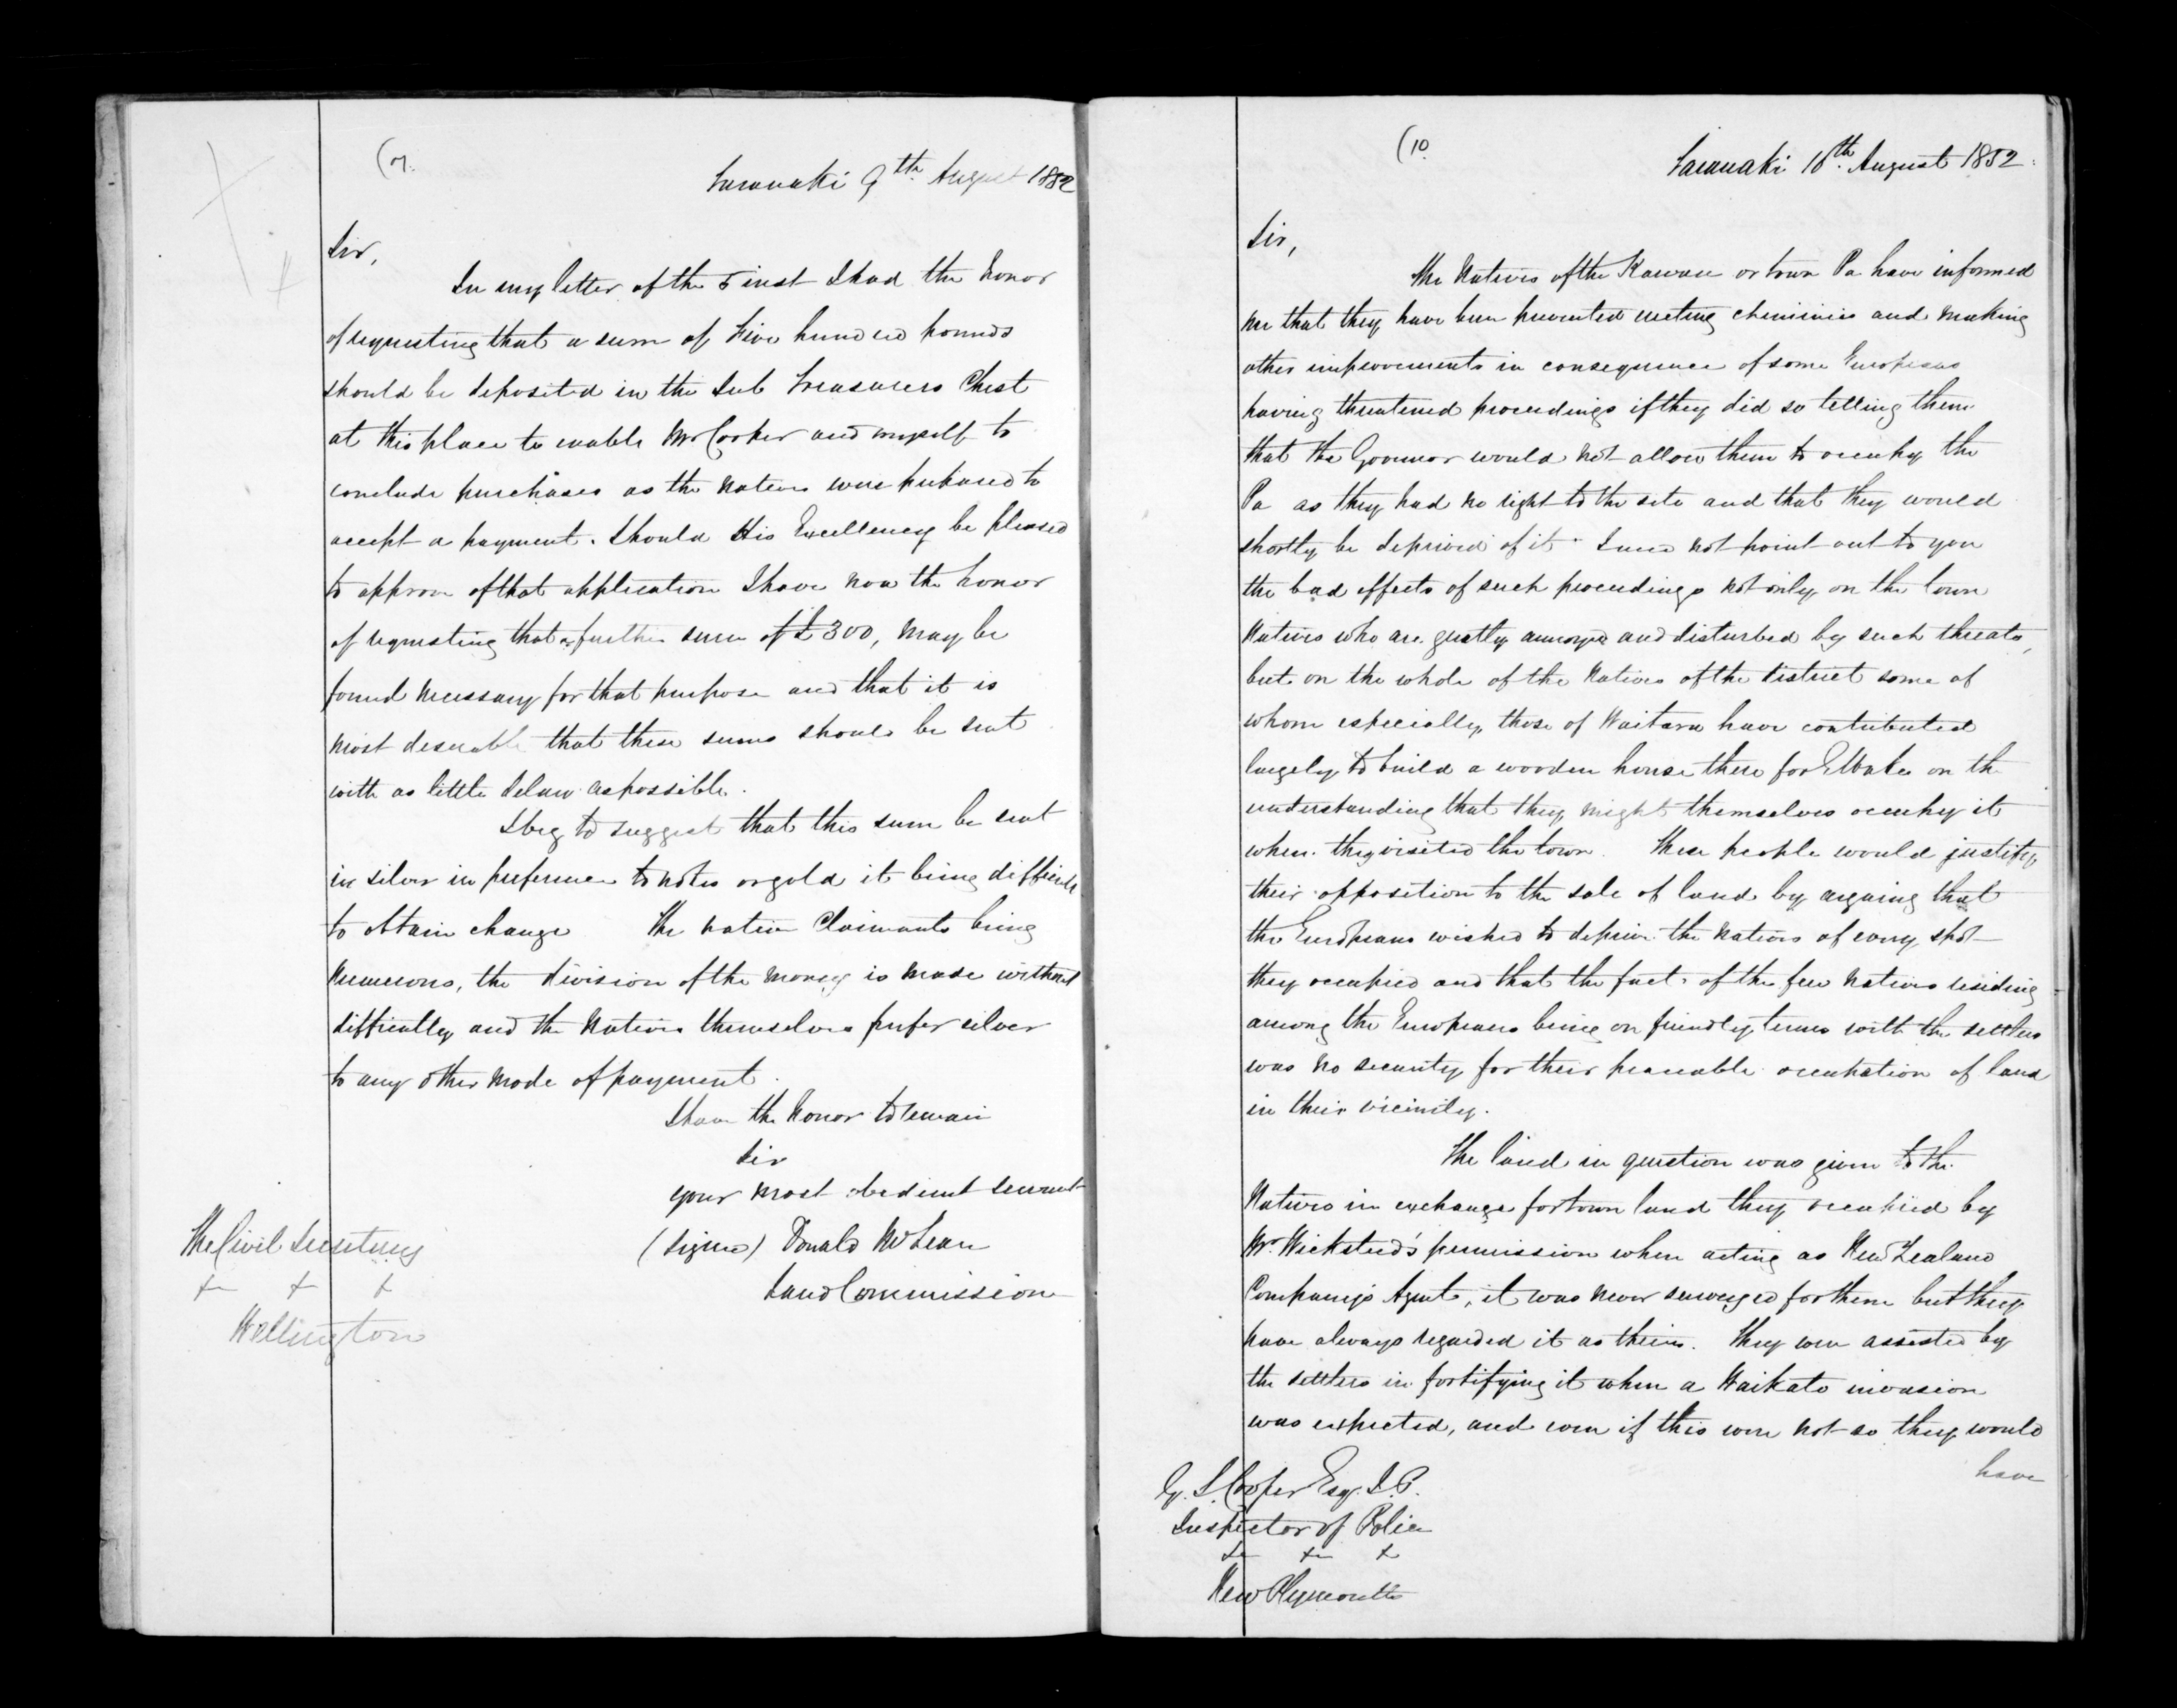 (9.
Taranaki 9th August 1852
Sir,
In my letter of the 5 inst I had the honor
of requesting that a sum of Five hundred pounds
should be deposited in the Sub Treasurers Chest
at this place to enable Mr Cooper and myself to
conclude purchases as the natives were prepared to
accept a payment. Should His Excellency be pleased
to approve of that application I have now the honor
of requesting that a further sum of £300, may be
found necessary for that purpose and that it is
most desirable that these sums should be sent
with as little delay as possible.
I beg to suggest that this sum be sent
in silver in preference to notes or gold it being difficult
to obtain change The native Claimants being
numerous, the division of the money is made without
difficulty and the Natives themselves prefer silver
to any other mode of payment.
I have the honor to remain
Sir
your most obedient servant
(Signed) Donald McLean
Land Commission
The Civil Secretary
&c &c &c
Wellington
(10
Taranaki 10th August 1852.
Sir,
The Natives of the Kawau or town Pa have informed
me that they have been prevented erecting chimnies and making
other improvements in consequence of some Europeans
having threatened proceedings if they did so telling them
that the Governor would not allow them to occupy the
Pa as they had no right to the site and that they would
shortly be deprived of it. I need not point out to you
the bad effects of such proceedings not only on the town
Natives who are greatly annoyed and disturbed by such threats,
but on the whole of the Natives of the district some of
whom especially those of Waitara have contributed
largely to build a wooden house there for E Waka on the
understanding that they might themselves occupy it
when they visited the town. These people would justify
their opposition to the sale of land by arguing that
the Europeans wished to deprive the Natives of every spot
they occupied and that the fact of the few Natives residing
among the Europeans being on friendly terms with the settlers
was no security for their peaceable occupation of land
in their vicinity.
The land in question was given to the
Natives in exchange for town land they occupied by
Mr. Wicksteed's permission when acting as New Zealand
Company's Agent, it was never surveyed for them but they
have always regarded it as theirs. They were assisted by
the settlers in fortifying it when a Waikato invasion
was expected, and even if this were not so they would
have
G. S. Cooper Esq. J.P.
Inspector of Police
&c &c &c
New Plymouth